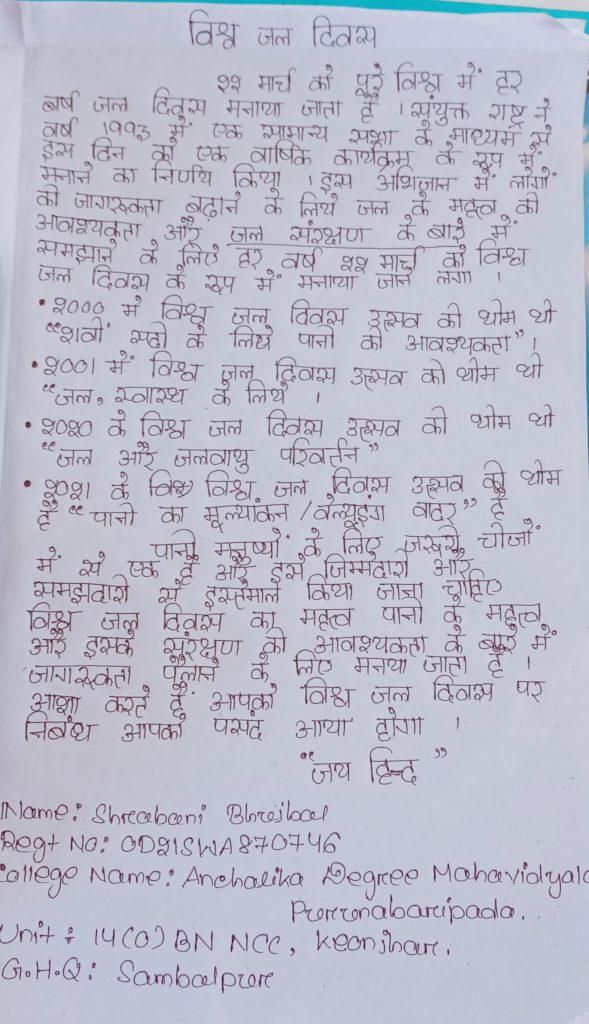 विश्व जल दिवस
२२ मार्च को पूरे विश्व में हर
बर्ष जल दिवस मनाया जाता है । संयुक्त राष्ट्र ने
वर्ष 1993 में एक सामान्य सभा के माध्यम से
इस दिन को एक वार्षिक कार्यक्रम के रूप में
मनाने का निर्णय किया । इस अभिजान में लोगों
को जागरूकता बढ़ाने के लिये जल के महत्व की
आवश्यकता और जल संरक्षण के बारे में
समझाने के लिए हर वर्ष २२ मार्च को विश्व
जल दिवस के रूप में मनाया जाने लगा ।
• २000 में विश्व जल दिवस उत्सव की थीम थी
"२१वीं सदी के लिये पानी की आवश्यकता" ।
• २00१ में विश्व जल दिवस उत्सव की थीम थी
"जल, स्वास्थ के लिये ।
• २०२० के विश्व जल दिवस उत्सव की थीम थी
"जल और जलवायु परिवर्त्तन"
• २०२१ के विश्व विश्व जल दिवस उत्सव की थीम
है "पानी का मूल्यांकन / वेल्यूइंग वाटर" है
पानी मनुष्यों के लिए जरूरी चीजों
में से एक है और इसे जिम्मेदारी और
समझदारी से इस्तेमाल किया जाना चाहिए
विश्व जल दिवस का महत्व पानी के महत्व
और इसके संरक्षण की आवश्यकता के बारे में
जागरूकता फैलाने के लिए मनया जाता है ।
आशा करते हैं आपको विश्व जल दिवस पर
निबंध आपको पसंद आया होगा ।
"जय हिन्द"
Name: Shreabani Bhrejbal
Regt No: OD21SWA870746
College Name: Anchalika Degree Mahavidyala
Purunabaripada..
Unit: 14(O) BN NCC, Keonjhar.
G.H.Q: Sambalpur